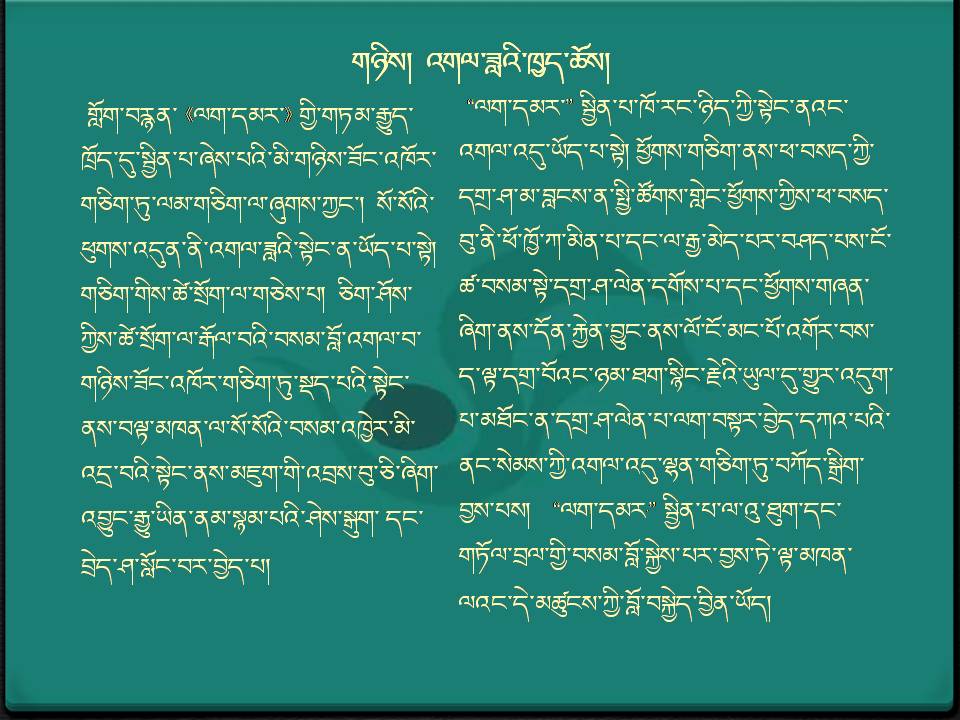 གཉིས། འགལ་ཟླའི་ཁྱད་ཆོས།
གློག་བརྙན་《ལག་དམར་》ཀྱི་གཏམ་རྒྱུད་
ཁྲོད་དུ་སྦྱིན་པ་ཞེས་པའི་མི་གཉིས་ཟོང་འཁོར་
གཅིག་ཏུ་ལམ་གཅིག་ལ་ཞུགས་ཀྱང་། སོ་སོའི་
ཕུགས་འདུན་ནི་འགལ་ཟླའི་སྟེང་ན་ཡོད་པ་སྟེ།
གཅིག་གིས་ཚེ་སྲོག་ལ་གཅེས་པ། ཅིག་ཤོས་
ཀྱིས་ཚེ་སྲོག་ལ་རྒོལ་བའི་བསམ་བློ་འགལ་བ་
གཉིས་ཟོང་འཁོར་གཅིག་ཏུ་སྡད་པའི་སྟེང་
ནས་བལྟ་མཁན་ལ་སོ་སོའི་བསམ་འཁྱེར་མི་
འདྲ་བའི་སྟེང་ནས་མཇུག་གི་འབྲས་བུ་ཅི་ཞིག་
འབྱུང་རྒྱུ་ཡིན་ནམ་སྙམ་པའི་ཤེས་སྒྲུག་ དང་
བྲེད་ཤ་སློང་བར་བྱེད་པ།
“ལག་དམར་” སྦྱིན་པ་ཁོ་རང་ཉིད་ཀྱི་སྟེང་ནའང་
འགལ་འདུ་ཡོད་པ་སྟེ། ཕྱོགས་གཅིག་ནས་ཕ་བསད་ཀྱི་
དགྲ་ཤ་མ་བླངས་ན་སྤྱི་ཚོགས་གླེང་ཕྱོགས་ཀྱིས་ཕ་བསད་
བུ་ནི་ཕོ་ཁྱོ་ཀ་མིན་པ་དང་ལ་རྒྱ་མེད་པར་བཤད་པས་ངོ་
ཚ་བསམ་སྟེ་དགྲ་ཤ་ལེན་དགོས་པ་དང་ཕྱོགས་གཞན་
ཞིག་ནས་དོན་རྐྱེན་བྱུང་ནས་ལོ་ངོ་མང་པོ་འགོར་བས་
ད་ལྟ་དགྲ་བོའང་ཉམ་ཐག་སྙིང་རྗེའི་ཡུལ་དུ་གྱུར་འདུག་
པ་མཐོང་ན་དགྲ་ཤ་ལེན་པ་ལག་བསྟར་བྱེད་དཀའ་པའི་
ནང་སེམས་ཀྱི་འགལ་འདུ་ལྷན་གཅིག་ཏུ་བཀོད་སྒྲིག་
བྱས་པས། “ལག་དམར་” སྦྱིན་པ་ལ་འུ་ཐུག་དང་
གཏོལ་བྲལ་གྱི་བསམ་བློ་སྐྱེས་པར་བྱས་ཏེ་ལྟ་མཁན་
ལའང་དེ་མཚུངས་ཀྱི་བློ་བསྐྱེད་བྱིན་ཡོད།